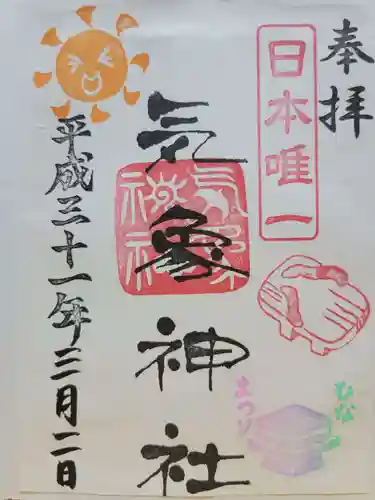 奉拝
日本唯一
気象神社
気象神社
平成三十一年三月二日
ひな
まつり